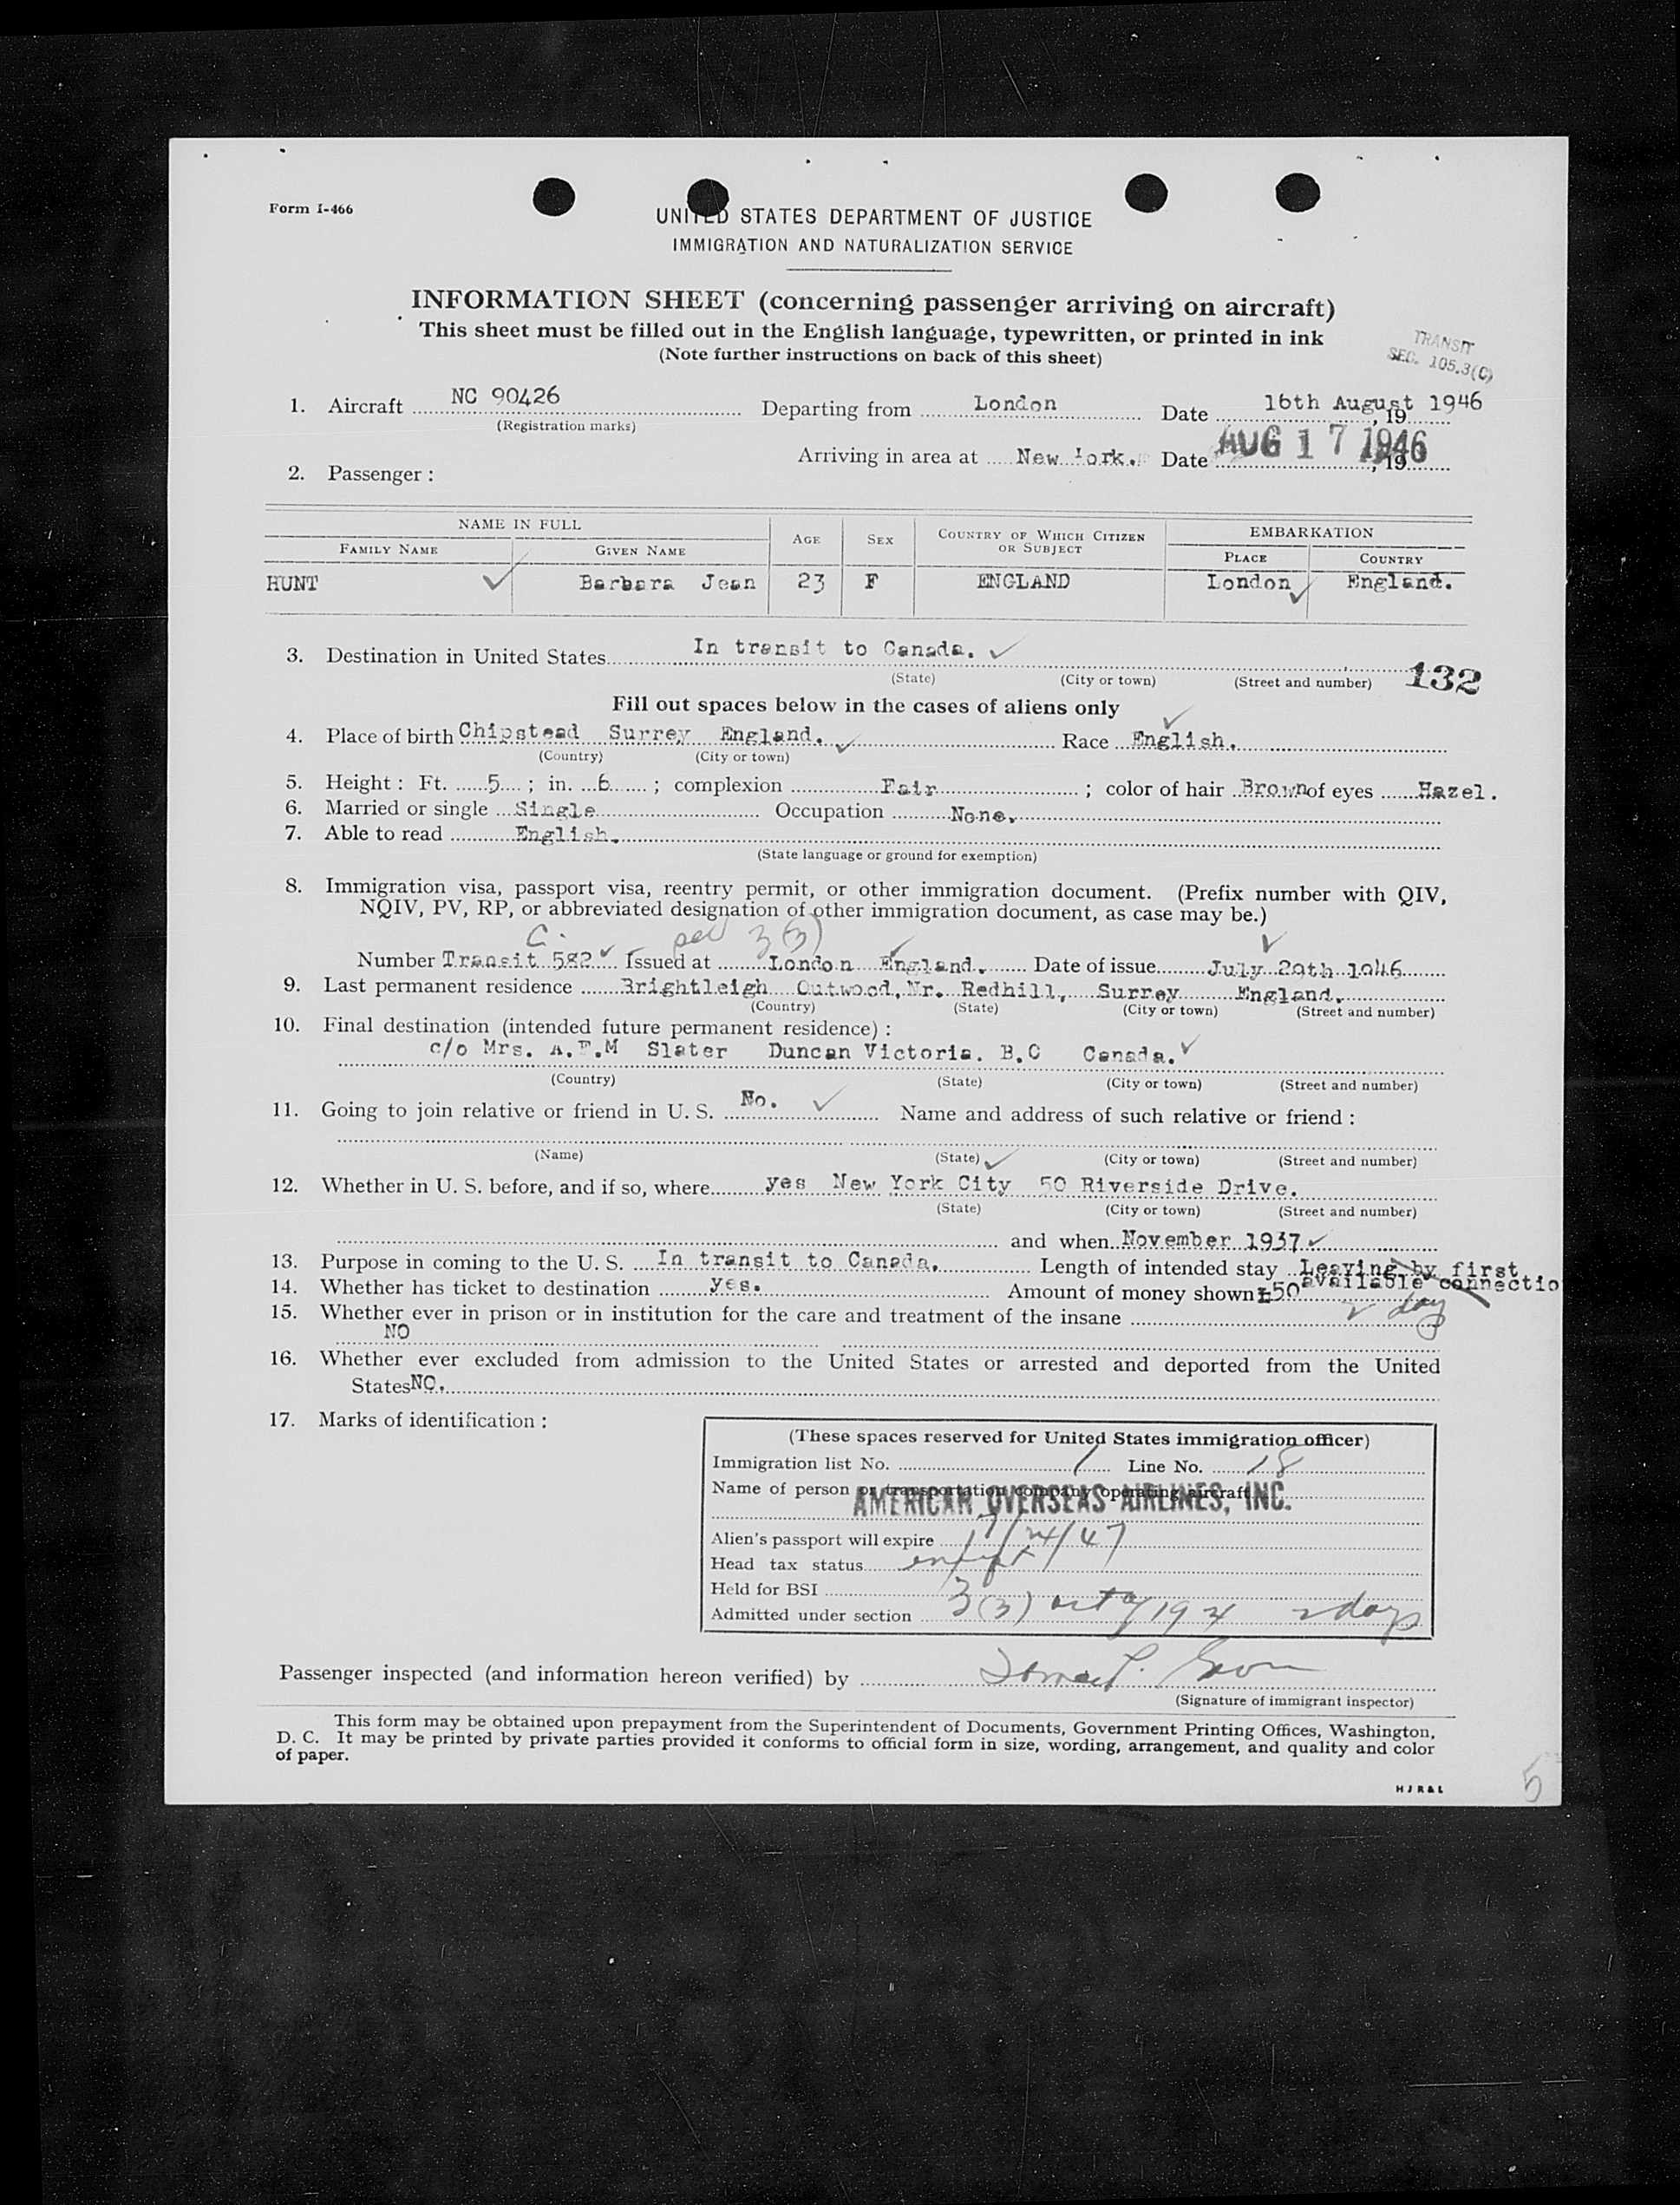 Form I-466
UNITED STATES DEPARTMENT OF JUSTICE
IMMIGRATION AND NATURALIZATION SERVICE
INFORMATION SHEET (concerning passenger arriving on aircraft)
This sheet must be filled out in the English language, typewritten, or printed in ink
(Note further instructions on back of this sheet)
TRANSIT
SEC. 105.3(C)
1. Aircraft NC 90426 Departing from London Date 16th August 1946, 19
(Registration marks)
Arriving in area at New York. Date AUG 17 1946, 19
2. Passenger :
NAME IN FULL AGE SEX COUNTRY OF WHICH CITIZEN OR SUBJECT EMBARKATION
FAMILY NAME GIVEN NAME PLACE COUNTRY
HUNT Barbara Jean 23 F ENGLAND London England.
3. Destination in United States In transit to Canada.
(State) (City or town) (Street and number) 132
Fill out spaces below in the cases of aliens only
4. Place of birth Chipstead Surrey England. Race English.
(Country) (City or town)
5. Height : Ft. 5 ; in. 6 ; complexion Fair ; color of hair Brown of eyes Hazel.
6. Married or single Single Occupation None.
7. Able to read English.
(State language or ground for exemption)
8. Immigration visa, passport visa, reentry permit, or other immigration document. (Prefix number with QIV,
NQIV, PV, RP, or abbreviated designation of other immigration document, as case may be.)
C. 3(3)
Number Transit 582 Issued at London England. Date of issue July 29th 1946
9. Last permanent residence Brightleigh Outwood, Nr. Redhill, Surrey England.
(Country) (State) (City or town) (Street and number)
10. Final destination (intended future permanent residence) :
c/o Mrs. A.F.M Slater Duncan Victoria. B.C Canada.
(Country) (State) (City or town) (Street and number)
11. Going to join relative or friend in U. S. No. Name and address of such relative or friend :
(Name) (State) (City or town) (Street and number)
12. Whether in U. S. before, and if so, where yes New York City 50 Riverside Drive.
(State) (City or town) (Street and number)
and when November 1937
13. Purpose in coming to the U. S. In transit to Canada. Length of intended stay Leaving by first
available connectio
14. Whether has ticket to destination yes. Amount of money shown £50
2 day
15. Whether ever in prison or in institution for the care and treatment of the insane
NO
16. Whether ever excluded from admission to the United States or arrested and deported from the United
States NO.
17. Marks of identification :
(These spaces reserved for United States immigration officer)
Immigration list No. 1 Line No. 18
Name of person or transportation company operating aircraft
AMERICAN OVERSEAS AIRLINES, INC.
Alien's passport will expire
Head tax status exempt
Held for BSI
Admitted under section 3(3) act of 1924 2 days
Passenger inspected (and information hereon verified) by
(Signature of immigrant inspector)
This form may be obtained upon prepayment from the Superintendent of Documents, Government Printing Offices, Washington,
D. C. It may be printed by private parties provided it conforms to official form in size, wording, arrangement, and quality and color
of paper.
HJR&L
5